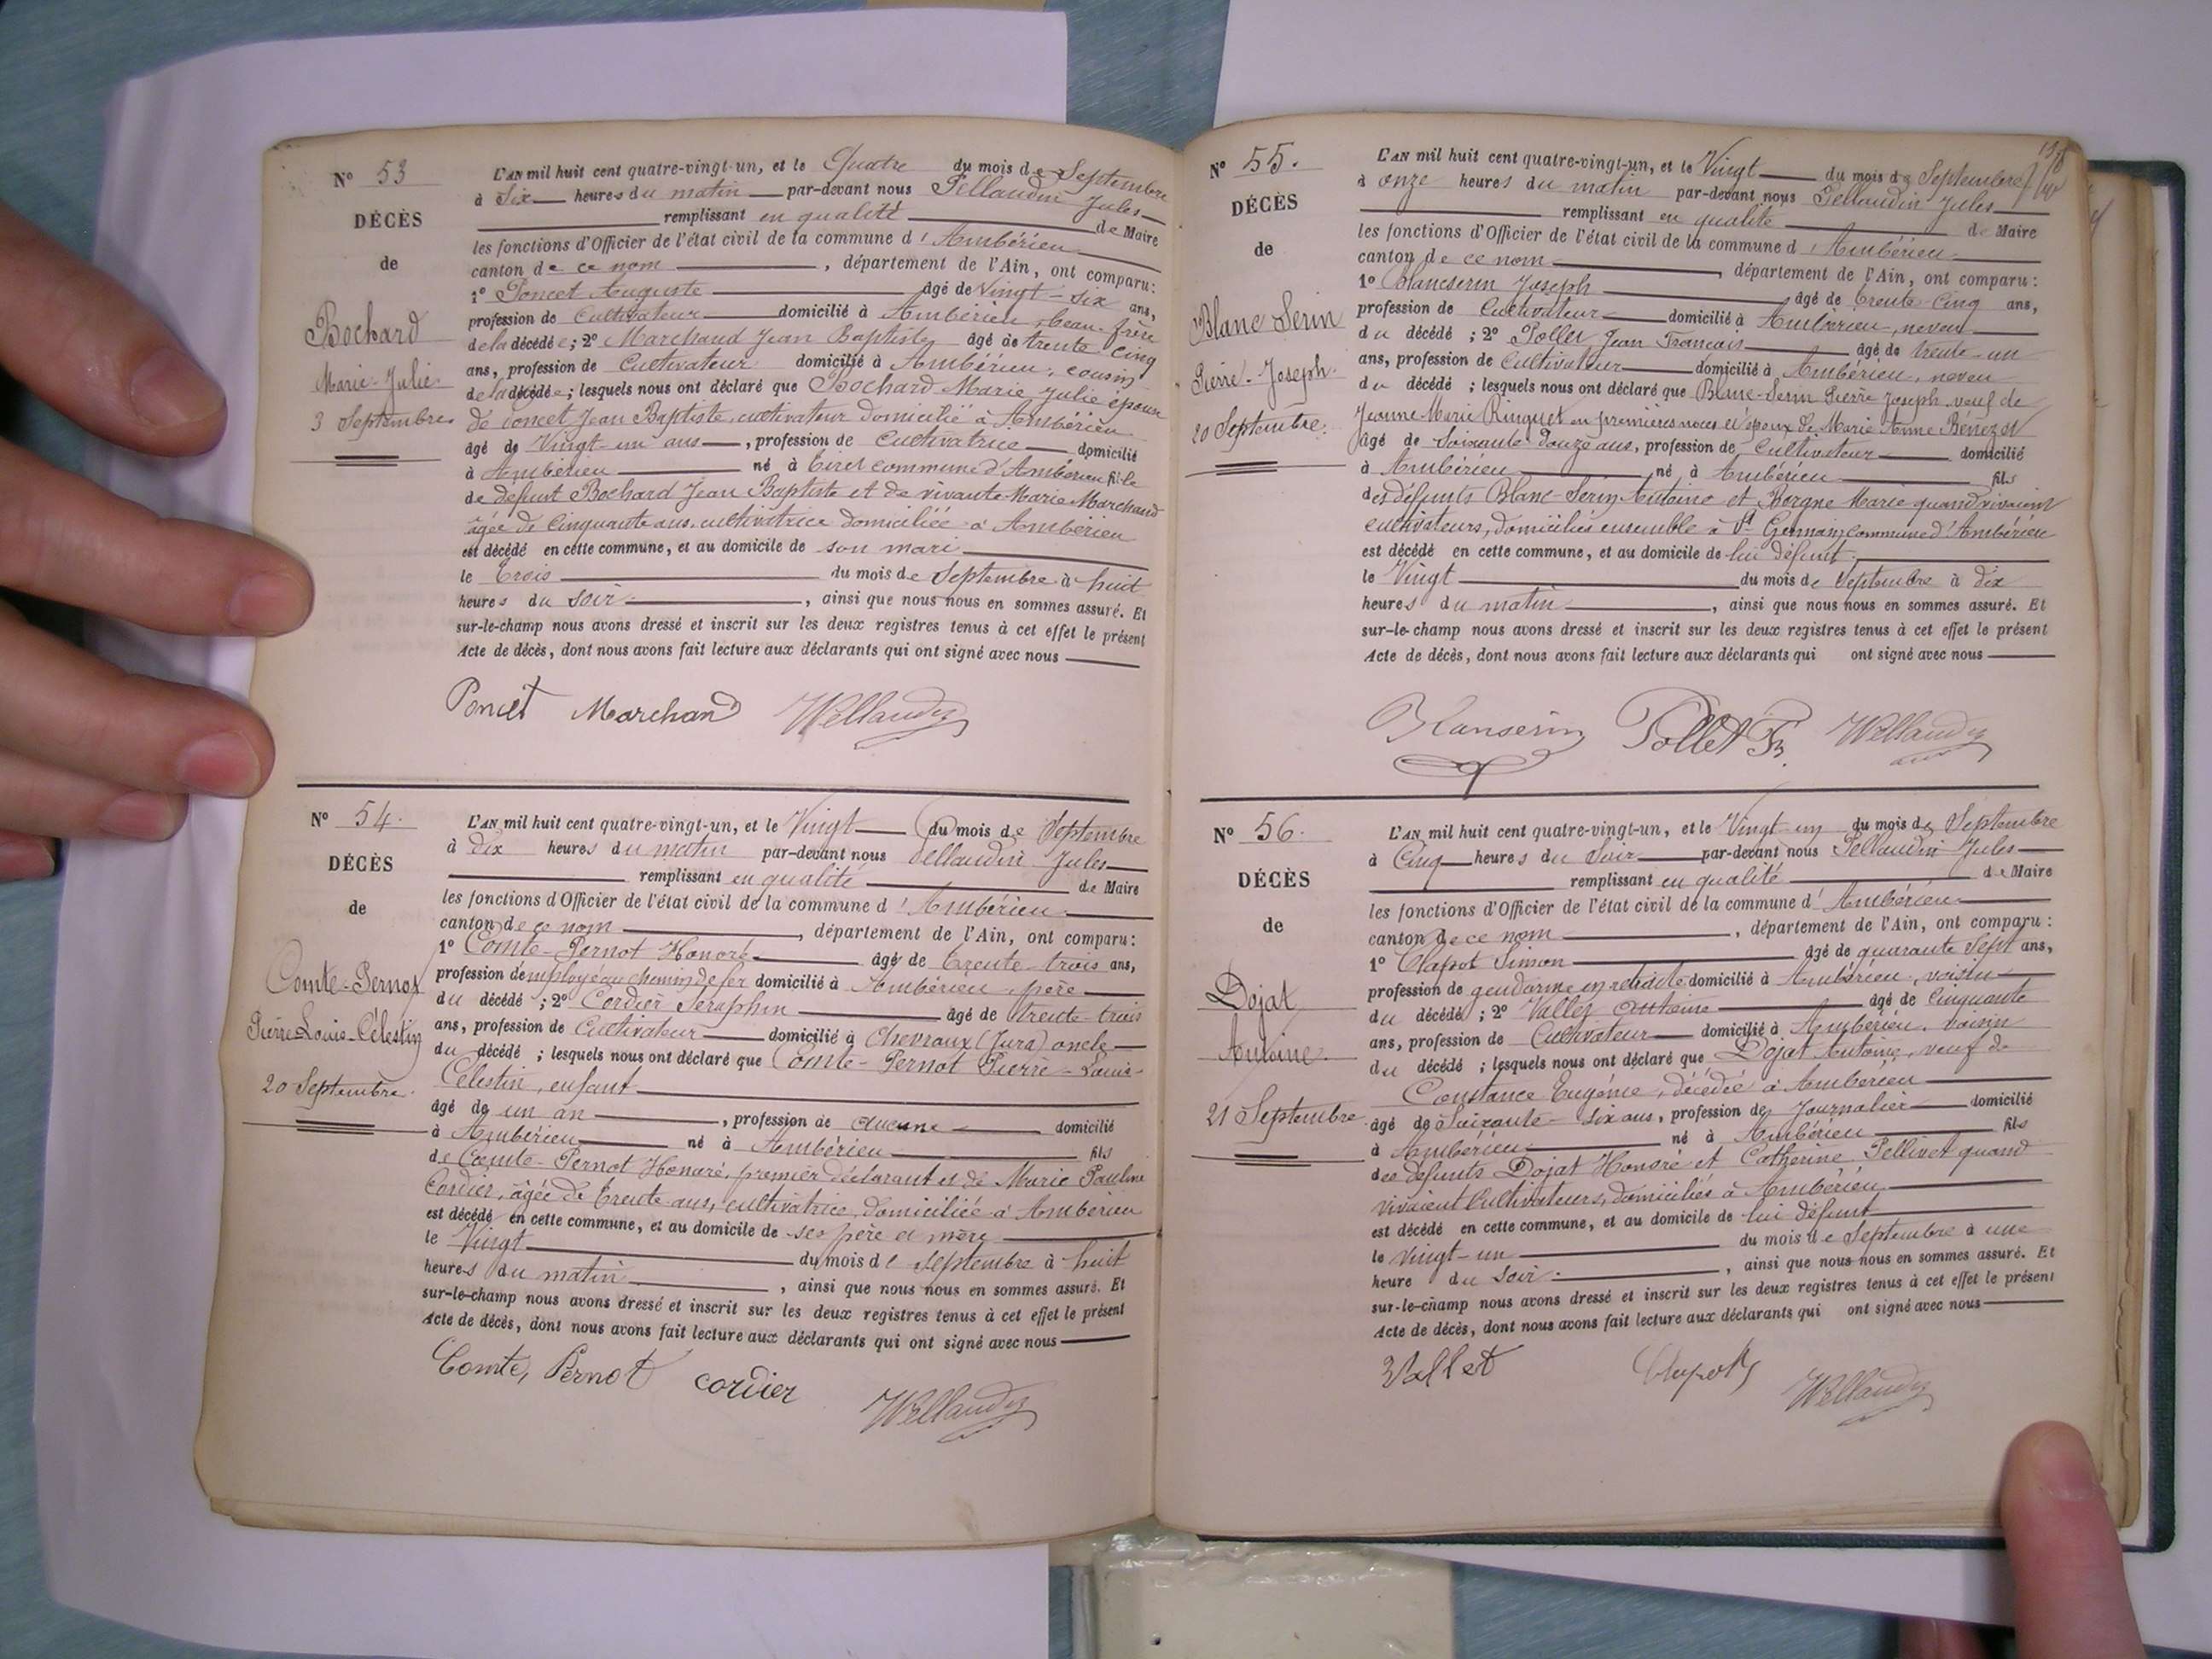 N° 53
DÉCÈS
de
Bochard
Marie-Julie
3 Septembre
L'AN mil huit cent quatre-vingt-un, et le Quatre du mois de Septembre
à Six heures du matin par-devant nous Pellaudin Jules
remplissant en qualité de Maire
les fonctions d'Officier de l'état civil de la commune d'Ambérieu
canton de ce nom, département de l'Ain, ont comparu:
1° Poncet Auguste âgé de Vingt-six ans,
profession de Cultivateur domicilié à Ambérieu, beau-frère
de la décédée; 2° Marchand Jean Baptiste âgé de trente cinq
ans, profession de Cultivateur domicilié à Ambérieu, cousin
de la décédée; lesquels nous ont déclaré que Bochard Marie Julie épouse
de Poncet Jean Baptiste, cultivateur domicilié à Ambérieu
âgé de Vingt-un ans, profession de Cultivatrice domicilié
à Ambérieu né à Tiret commune d'Ambérieu fille
de défunt Bochard Jean Baptiste et de vivante Marie Marchand
âgée de Cinquante ans, cultivatrice domiciliée à Ambérieu
est décédé en cette commune, et au domicile de son mari
le Trois du mois de Septembre à huit
heures du soir, ainsi que nous nous en sommes assuré. Et
sur-le-champ nous avons dressé et inscrit sur les deux registres tenus à cet effet le présent
Acte de décès, dont nous avons fait lecture aux déclarants qui ont signé avec nous
Poncet Marchand
N° 54.
DÉCÈS
de
Comte-Pernot
Pierre Louis-Célestin
20 Septembre
L'AN mil huit cent quatre-vingt-un, et le Vingt du mois de Septembre
à dix heures du matin par-devant nous Pellaudin Jules
remplissant en qualité de Maire
les fonctions d'Officier de l'état civil de la commune d'Ambérieu
canton de ce nom, département de l'Ain, ont comparu:
1° Comte-Pernot Honoré âgé de trente-trois ans,
profession d'employé au chemin de fer domicilié à Ambérieu, père
du décédé; 2° Cordier Seraphin âgé de trente-trois
ans, profession de Cultivateur domicilié à Chevraux (Jura) oncle
du décédé; lesquels nous ont déclaré que Comte-Pernot Pierre-Louis-
Célestin, enfant
âgé de un an, profession de aucune domicilié
à Ambérieu né à Ambérieu fils
de Comte-Pernot Honoré, premier déclarant et de Marie Pauline
Cordier, âgée de trente ans, cultivatrice, domiciliée à Ambérieu
est décédé en cette commune, et au domicile de ses père et mère
le Vingt du mois de Septembre à huit
heures du matin, ainsi que nous nous en sommes assuré. Et
sur-le-champ nous avons dressé et inscrit sur les deux registres tenus à cet effet le présent
Acte de décès, dont nous avons fait lecture aux déclarants qui ont signé avec nous
Comte, Pernot cordier
N° 55.
DÉCÈS
de
Blanc Serin
Pierre-Joseph
20 Septembre
L'AN mil huit cent quatre-vingt-un, et le Vingt du mois de Septembre
à onze heures du matin par-devant nous Pellaudin Jules
remplissant en qualité de Maire
les fonctions d'Officier de l'état civil de la commune d'Ambérieu
canton de ce nom, département de l'Ain, ont comparu:
1° Blancserin Joseph âgé de trente-cinq ans,
profession de Cultivateur domicilié à Ambérieu, neveu
du décédé; 2° Pollet Jean François âgé de trente-un
ans, profession de Cultivateur domicilié à Ambérieu, neveu
du décédé; lesquels nous ont déclaré que Blanc-Serin Pierre Joseph veuf de
Jeanne Marie Ringuet en premières noces et époux de Marie Anne Bénezet
âgé de Soixante-douze ans, profession de Cultivateur domicilié
à Ambérieu né à Ambérieu fils
des défunts Blanc-Serin Antoine et Borgne Marie quand vivaient
cultivateurs, domiciliés ensemble à St Germain, commune d'Ambérieu
est décédé en cette commune, et au domicile de lui défunt
le Vingt du mois de Septembre à dix
heures du matin, ainsi que nous nous en sommes assuré. Et
sur-le-champ nous avons dressé et inscrit sur les deux registres tenus à cet effet le présent
Acte de décès, dont nous avons fait lecture aux déclarants qui ont signé avec nous
Blanserin Pollet
N° 56.
DÉCÈS
de
Dojat
Antoine
21 Septembre
L'AN mil huit cent quatre-vingt-un, et le Vingt-un du mois de Septembre
à Cinq heures du Soir par-devant nous Pellaudin Jules
remplissant en qualité de Maire
les fonctions d'Officier de l'état civil de la commune d'Ambérieu
canton de ce nom, département de l'Ain, ont comparu:
1° Clapot Simon âgé de quarante Sept ans,
profession de gendarme en retraite domicilié à Ambérieu, voisin
du décédé; 2° Vallet Antoine âgé de Cinquante
ans, profession de Cultivateur domicilié à Ambérieu, voisin
du décédé; lesquels nous ont déclaré que Dojat Antoine, veuf de
Constance Eugénie, décédée à Ambérieu
âgé de Soixante-six ans, profession de Journalier domicilié
à Ambérieu né à Ambérieu fils
des défunts Dojat Honoré et Catherine Pellivet quand
vivaient Cultivateurs, domiciliés à Ambérieu
est décédé en cette commune, et au domicile de lui défunt
le Vingt-un du mois de Septembre à une
heure du soir, ainsi que nous nous en sommes assuré. Et
sur-le-champ nous avons dressé et inscrit sur les deux registres tenus à cet effet le présent
Acte de décès, dont nous avons fait lecture aux déclarants qui ont signé avec nous
Vallet